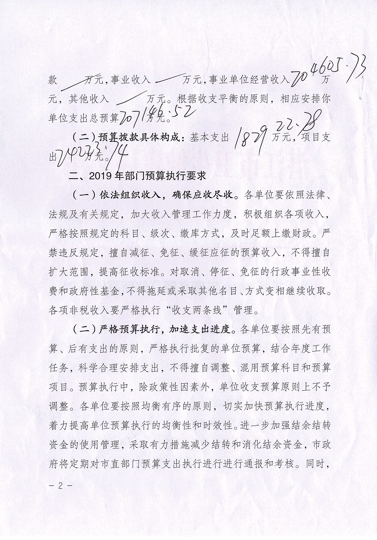 款 — 万元,事业收入 — 万元,事业单位经营收入704605.73万
元，其他收入 — 万元。根据收支平衡的原则，相应安排你
单位支出总预算707146.52万元。
（二）预算拨款具体构成：基本支出 万元，项目支
出 万元。
二、2019年部门预算执行要求
（一）依法组织收入，确保应收尽收。各单位要依照法律、
法规及有关规定，加大收入管理工作力度，积极组织各项收入，
严格按照规定的科目、级次、缴库方式，及时足额上缴财政。严
禁违反规定，擅自减征、免征、缓征应征的预算收入，不得擅自
扩大范围，提高征收标准。对取消、停征、免征的行政事业性收
费和政府性基金,不得拖延或采取其他名目、方式变相继续收取。
各项非税收入要严格执行“收支两条线”管理。
（二）严格预算执行，加速支出进度。各单位要按照先有预
算、后有支出的原则，严格执行批复的单位预算，结合年度工作
任务，科学合理安排支出，不得擅自调整、混用预算科目和预算
项目。预算执行中，除政策性因素外，单位收支预算原则上不予
调整。各单位要按照均衡有序的原则，切实加快预算执行进度，
着力提高单位预算执行的均衡性和时效性。进一步加强结余结转
资金的使用管理，采取有力措施减少结转和消化结余资金，市政
府将定期对市直部门预算支出执行进行进行通报和考核。同时，
- 2 -